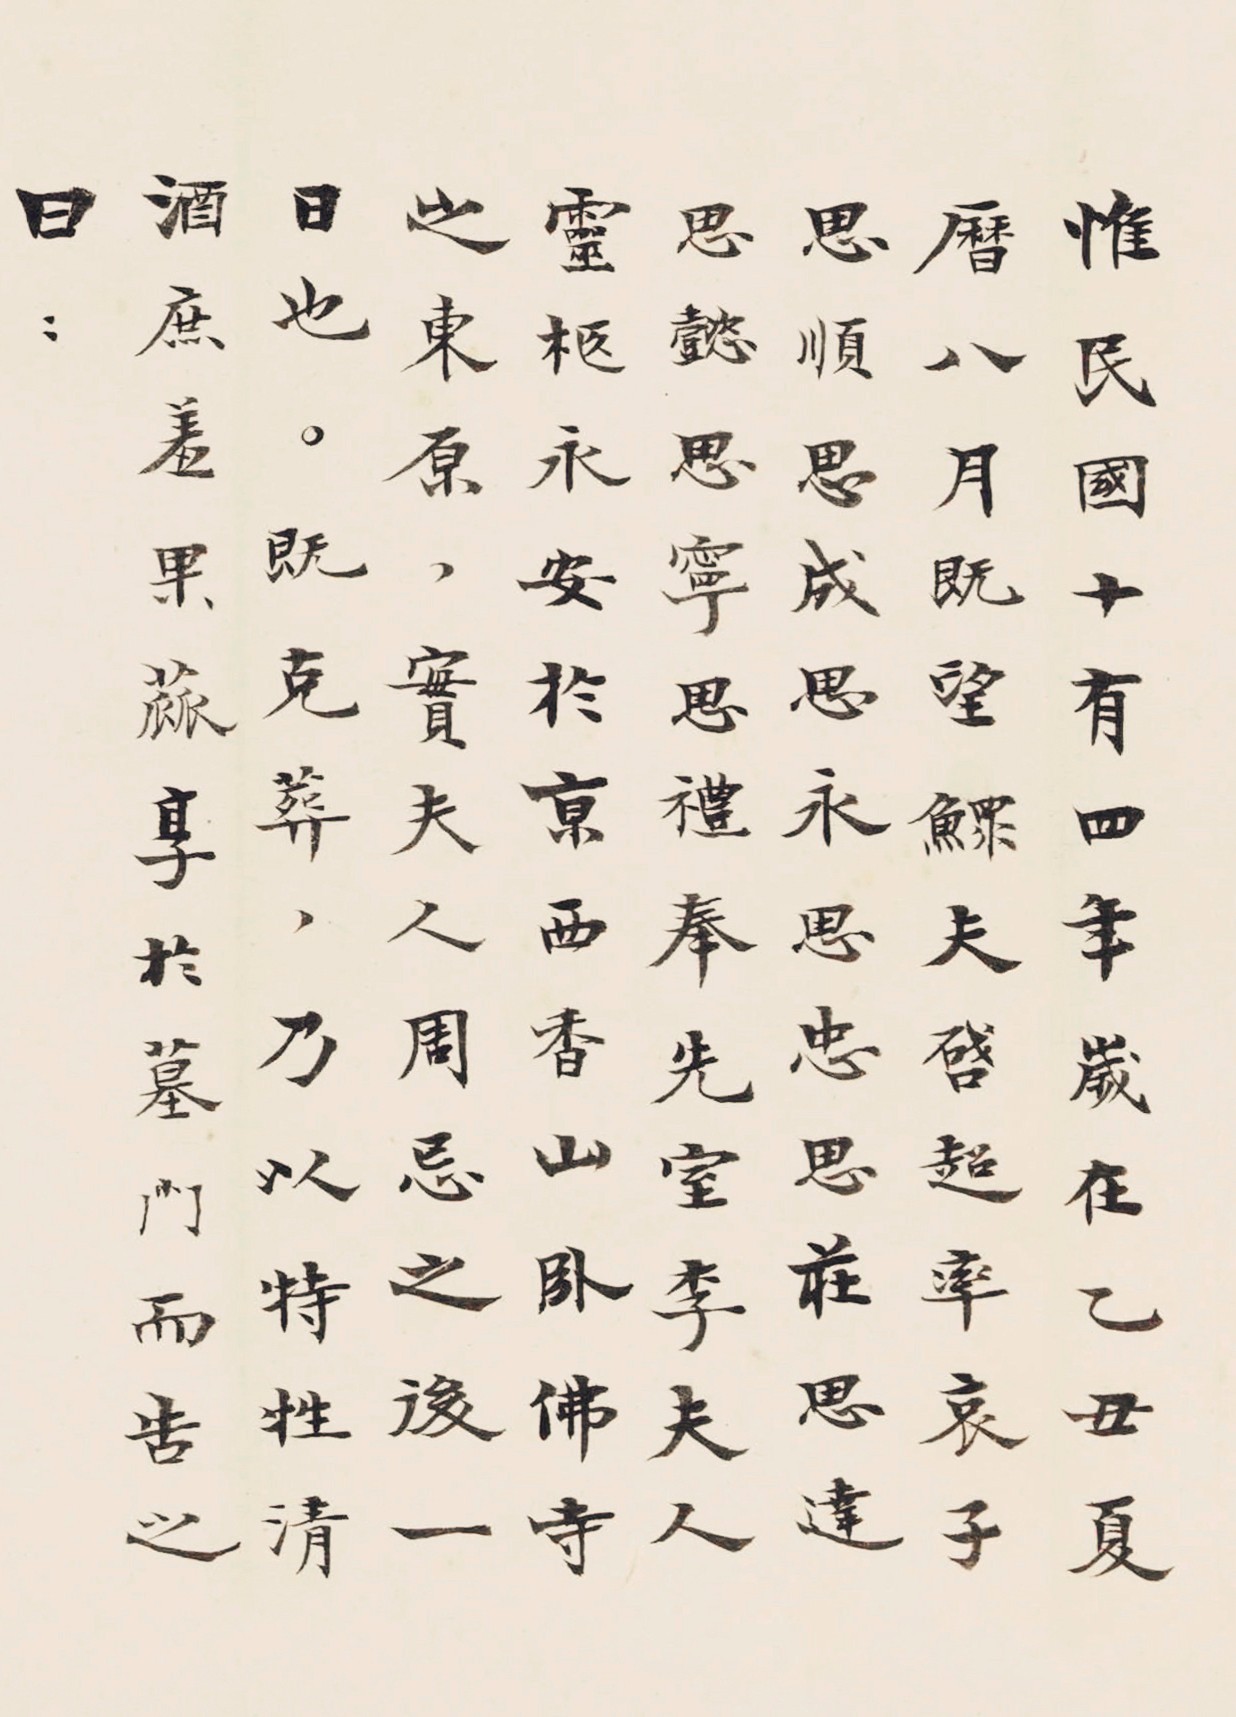 惟民國十有四年歲在乙丑夏
曆八月既望鰥夫啓超率哀子
思順思成思永思忠思莊思達
思懿思寧思禮奉先室李夫人
靈柩永安於京西香山卧佛寺
之東原，實夫人周忌之後一
日也。既克葬，乃以特牲清
酒庶羞果蓏享於墓門而告之
曰：